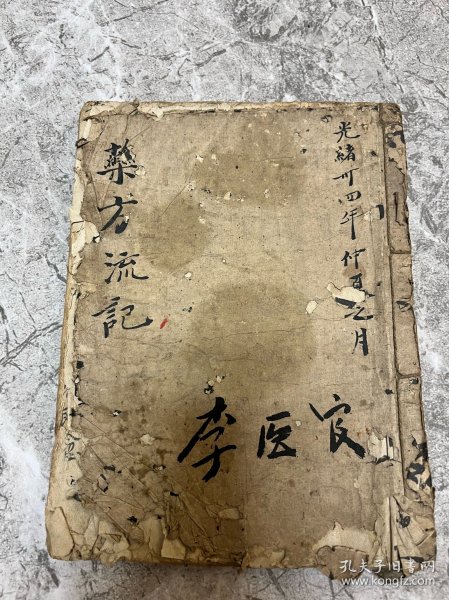 光緒卅四年仲夏之月
藥方流記
李医官
孔夫子旧书网
www.kongfz.com